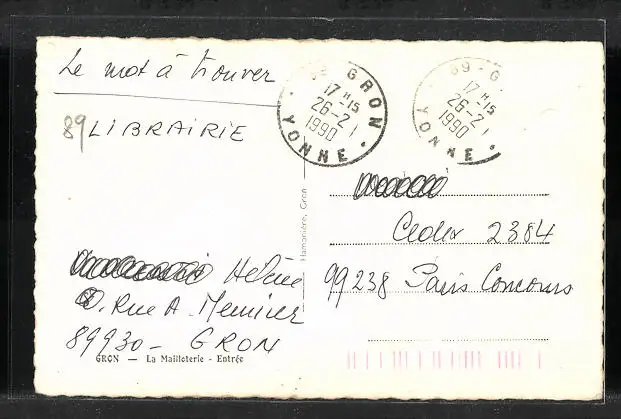 Le mot à trouver
89 LIBRAIRIE
89 GRON
17 H 15
26-2
1990
YONNE
89-G
17 H 15
26-2
1990
YONNE
Hamonière, Gron
Cedex 2384
99238 Paris Concours
Hélène
Rue A. Meunier
89930 - GRON
GRON — La Mailloterie - Entrée